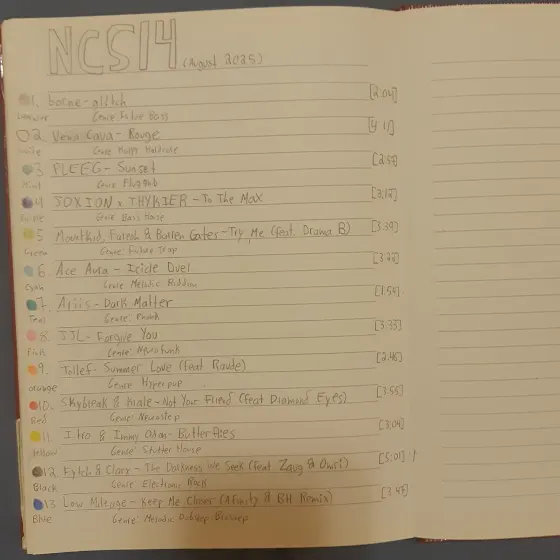 NCS14 (August 2025)
1. borne - glitch [2:04]
Genre: Future Bass
02. Vena Cava - Rouge [4:11]
White Genre: Happy Hardcore
3. PLEEG - Sunset
Mint Genre: Pluggnb
4. JOXION x THYKIER - To The Max [3:12]
Purple Genre: Bass House
5. MountKid, & Bollen Gates - Try Me (feat. Drama B) [3:39]
Green Genre: Future Trap
6. Ace Aura - Icicle Duel
Cyan Genre: Melodic Riddim
7. Ariis - Dark Matter
Teal Genre: Phonk
8. JJL - Forgive You [3:33]
Pink Genre: Neurofunk
9. Tollef - Summer Love (feat Raude) [2:46]
orange Genre: Hyperpop
10. Skybreak & Kiale - Not Your Friend (feat Diamond Eyes) [3:55]
Red Genre: Neurostep
11. Itro & Jimmy Odon - Butterflies [3:04]
Yellow Genre: Stutter House
12. Fytch & Clarx - The Darkness We Seek (feat Zaug & Owsi) [5:01]
Black Genre: Electronic Rock
13. Low Mileage - Keep Me Closer (Afinity & BH Remix) [3:48]
Blue Genre: Melodic Dubstep